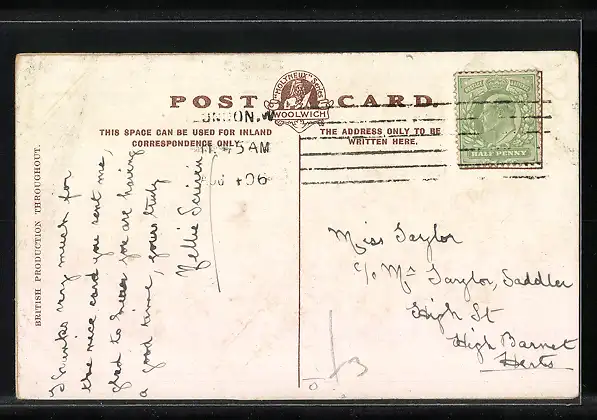 POST CARD
"MOLYNEUX" Series
WOOLWICH
LONDON. W
THIS SPACE CAN BE USED FOR INLAND
CORRESPONDENCE ONLY.
THE ADDRESS ONLY TO BE
WRITTEN HERE.
AM
06
HALF PENNY
BRITISH PRODUCTION THROUGHOUT.
Thanks very much for
the nice card you sent me,
glad to hear you are having
a good time, yours truly
Nellie
Miss Taylor
c/o Mr Taylor, Saddler
High St
High Barnet
Herts